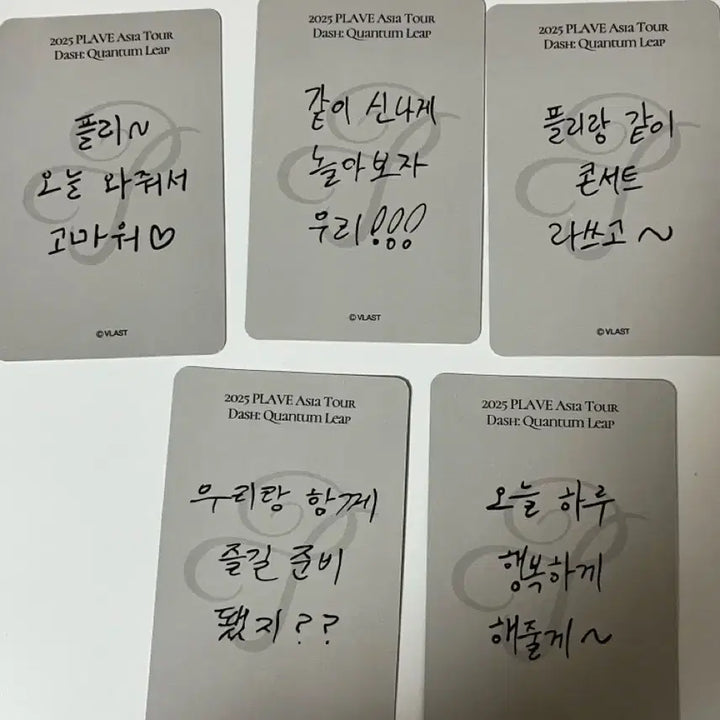 2025 PLAVE Asia Tour
Dash: Quantum Leap
플리~
오늘 와줘서
고마워♡
© VLAST
2025 PLAVE Asia Tour
Dash: Quantum Leap
같이 신나게
놀아보자
우리!!!
© VLAST
2025 PLAVE Asia Tour
Dash: Quantum Leap
플리랑 같이
콘서트
라쓰고~
© VLAST
2025 PLAVE Asia Tour
Dash: Quantum Leap
우리랑 함께
즐길 준비
됐지??
2025 PLAVE Asia Tour
Dash: Quantum Leap
오늘 하루
행복하게
해줄게~